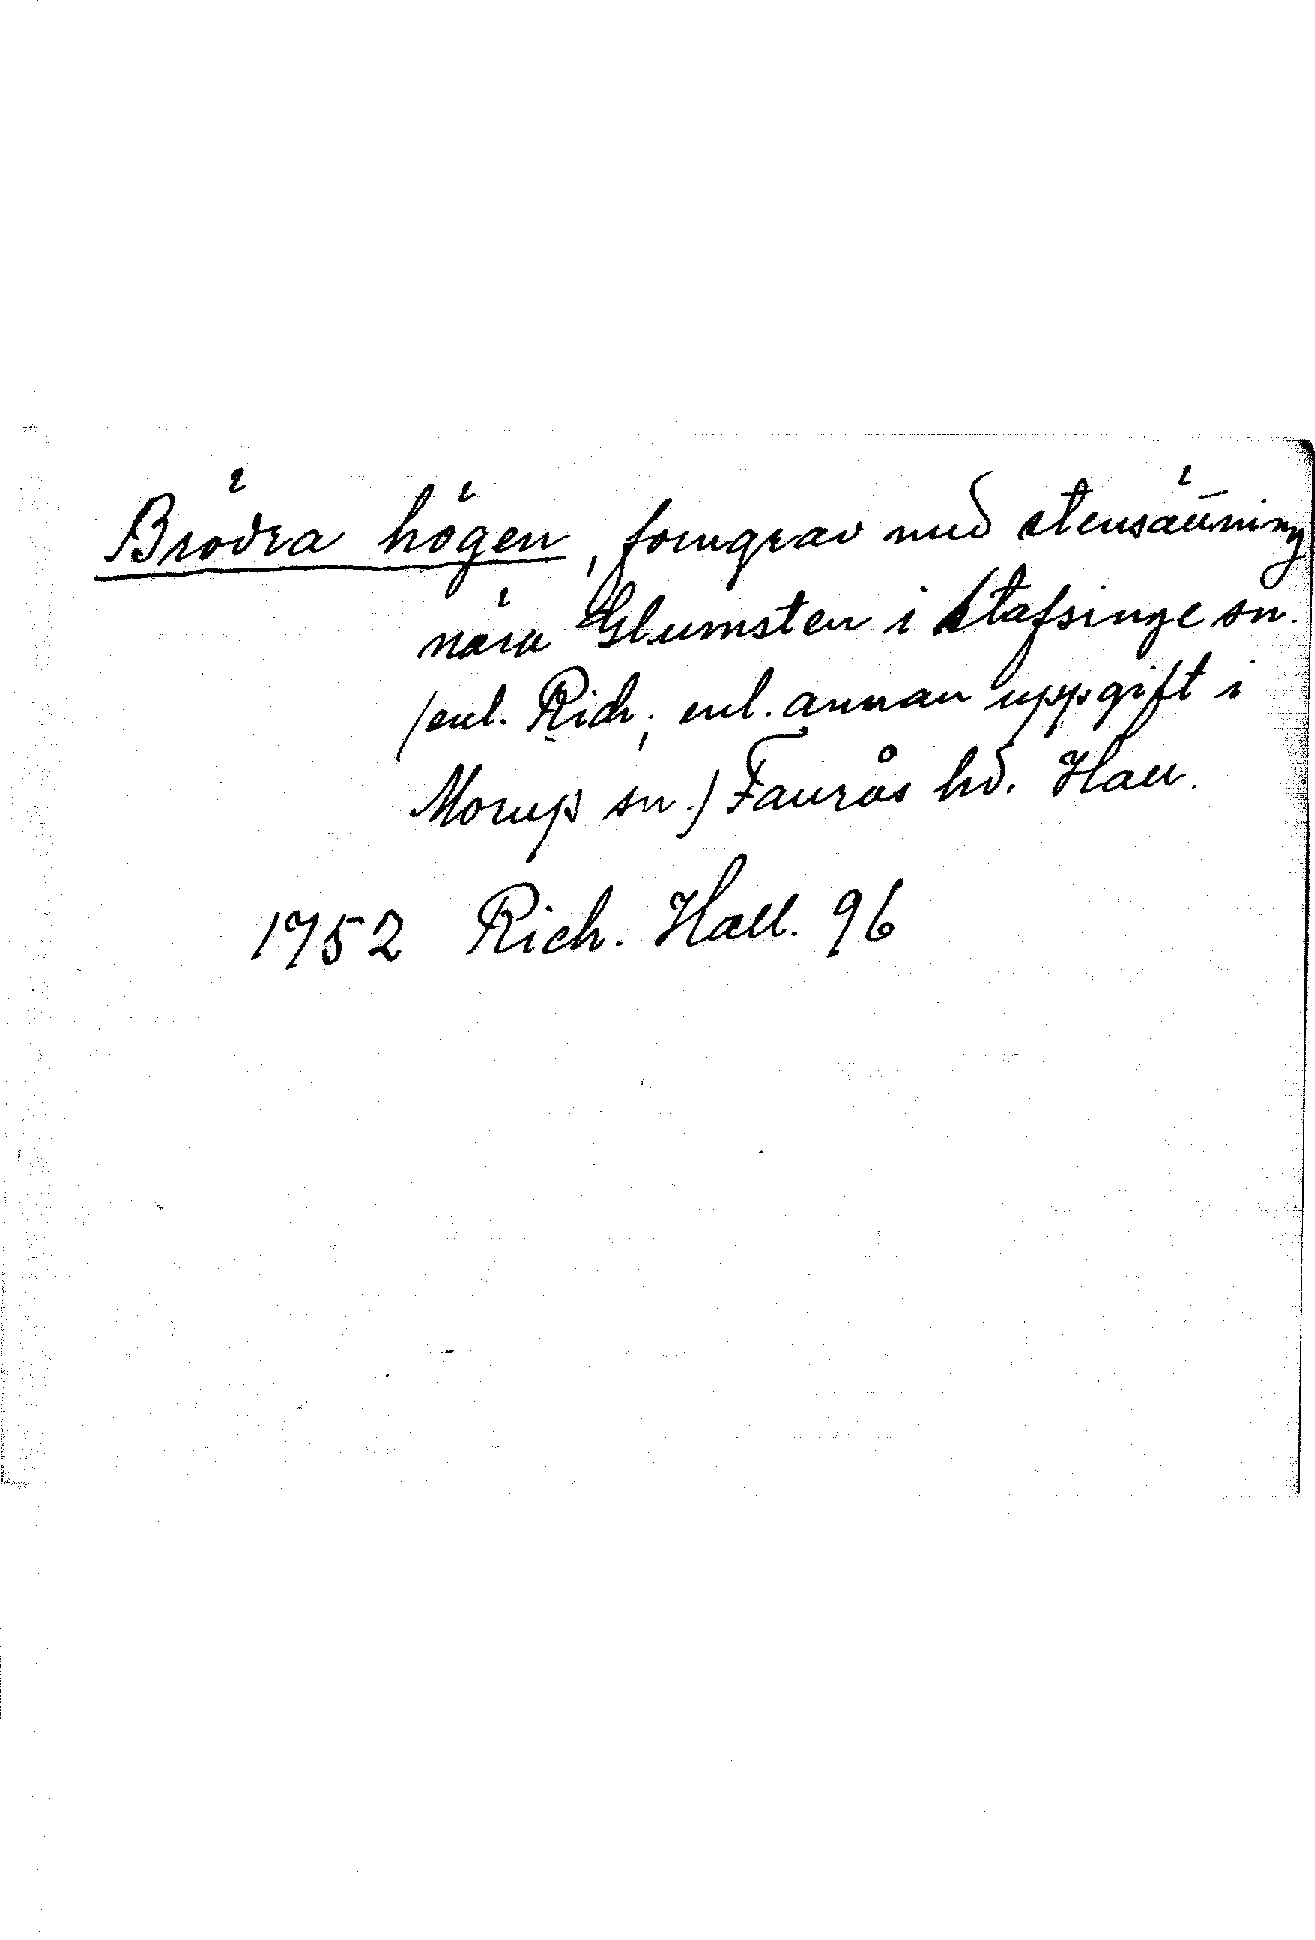 Brödra högen, forngrav med stensättning
nära Glumsten i Stafsinge sn.
(enl. Rich.; enl. annan uppgift i
Morup sn.) Faurås hd. Hall.
1752 Rich. Hall. 96